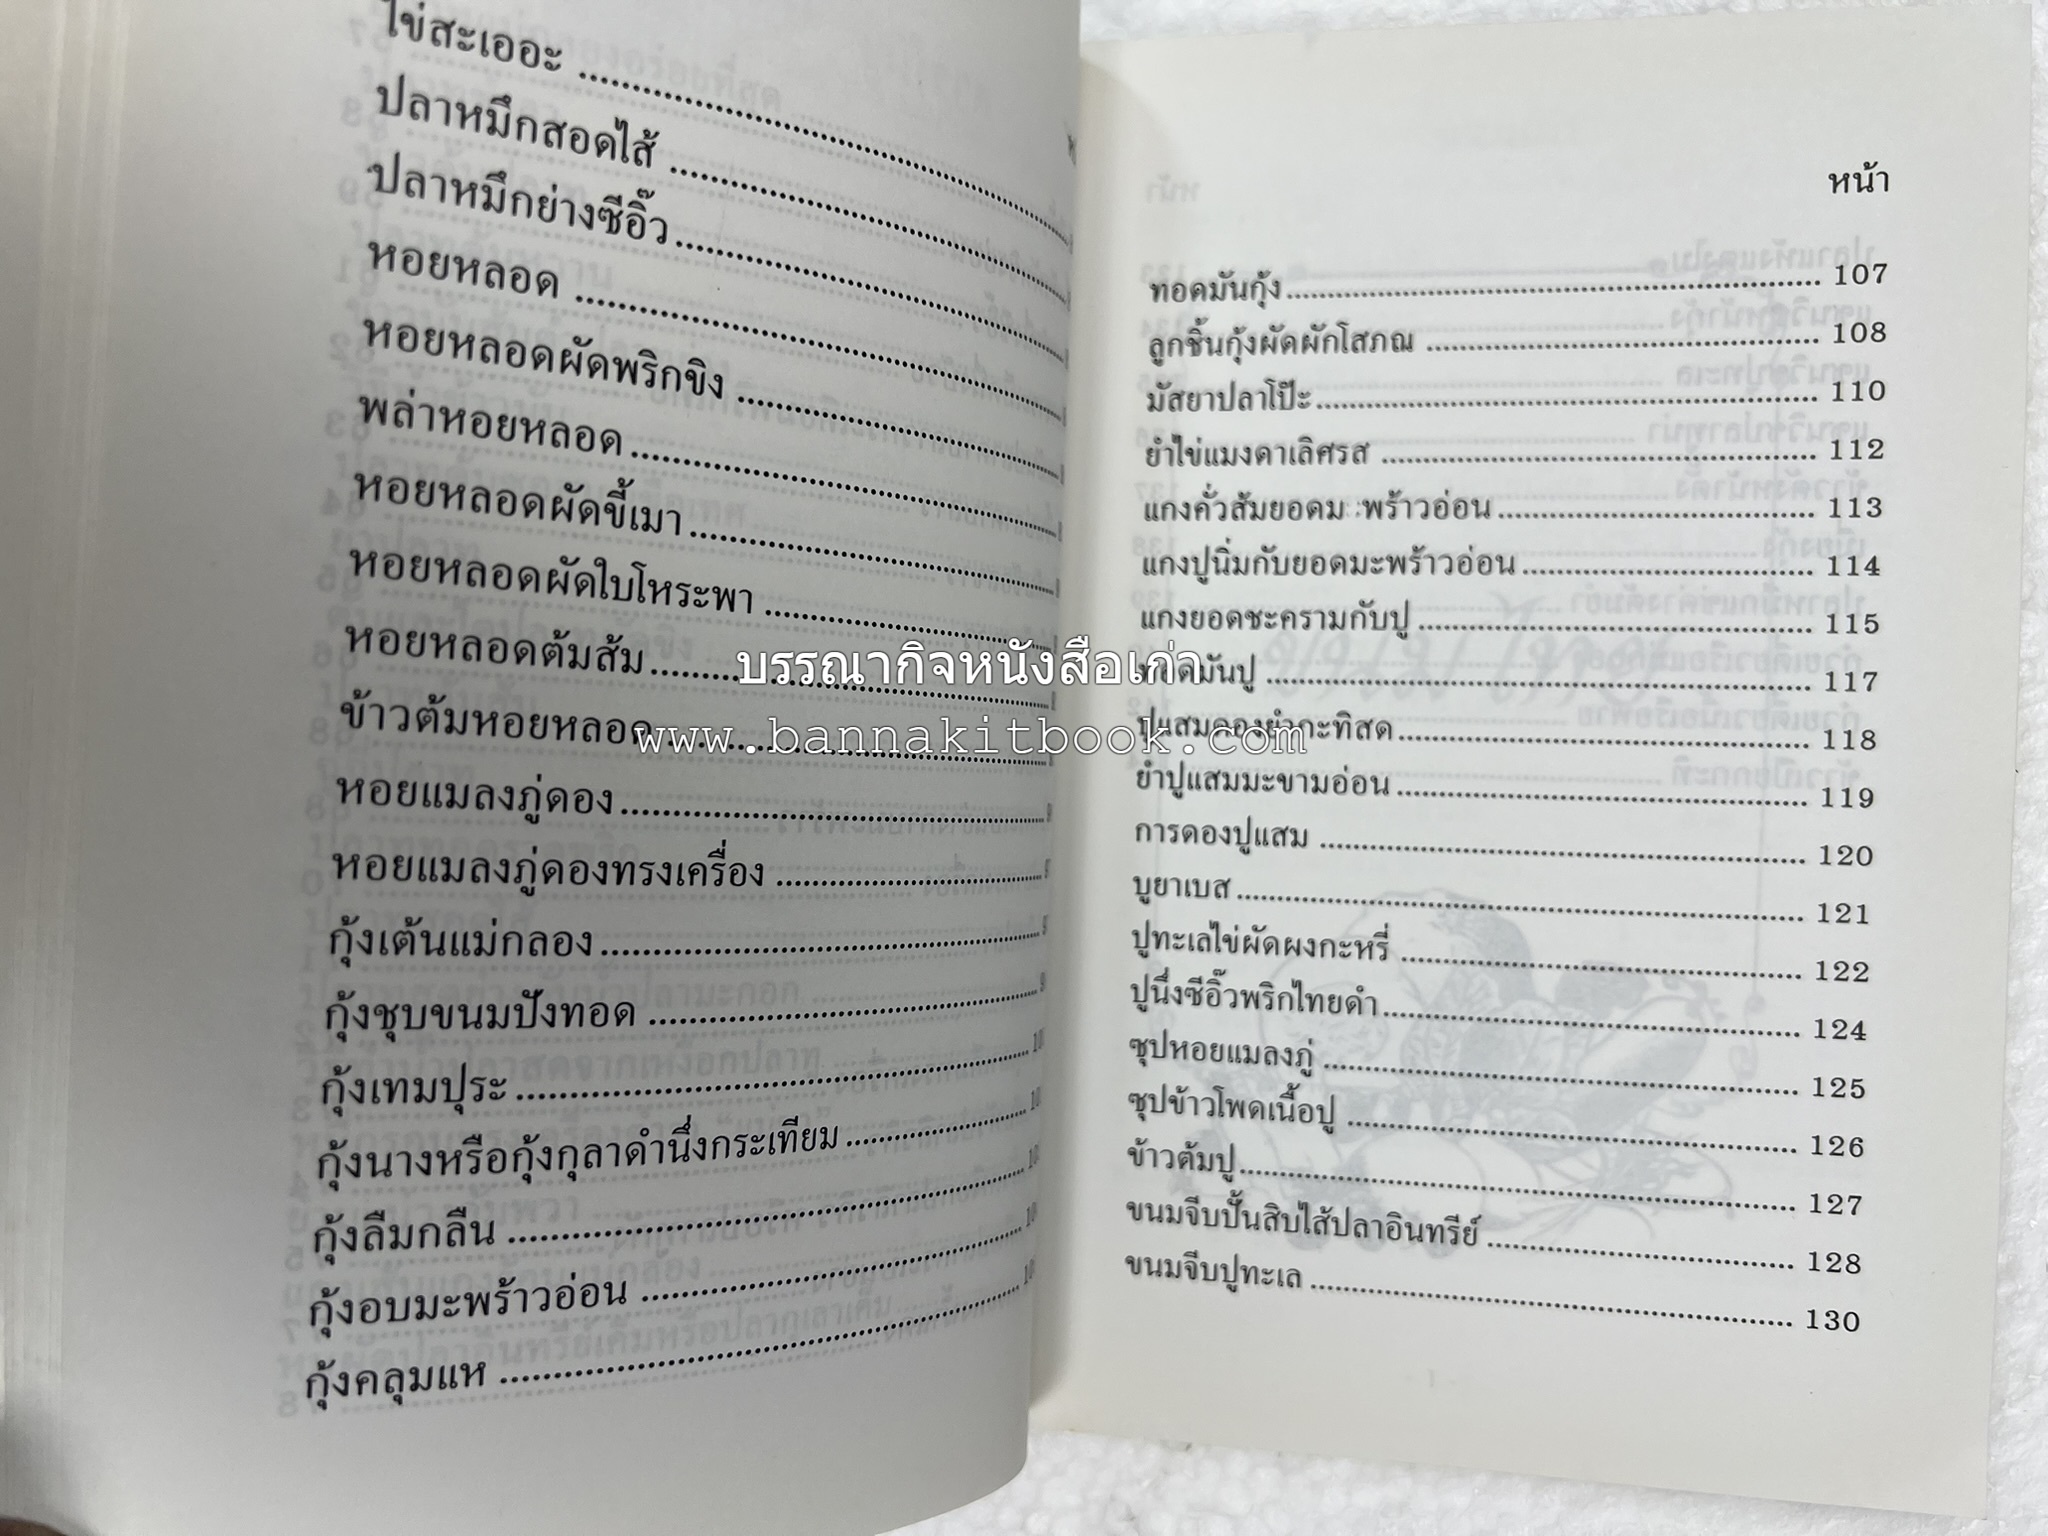 ไข่สะเออะ
ปลาหมึกสอดไส้
ปลาหมึกย่างซีอิ๊ว
หอยหลอด
หอยหลอดผัดพริกขิง
พล่าหอยหลอด
หอยหลอดผัดขี้เมา
หอยหลอดผัดใบโหระพา
หอยหลอดต้มส้ม
ข้าวต้มหอยหลอด
หอยแมลงภู่ดอง
หอยแมลงภู่ดองทรงเครื่อง
กุ้งเต้นแม่กลอง
กุ้งชุบขนมปังทอด
กุ้งเทมปุระ
กุ้งนางหรือกุ้งกุลาดำนึ่งกระเทียม
กุ้งลืมกลืน
กุ้งอบมะพร้าวอ่อน
กุ้งคลุมแห
หน้า
ทอดมันกุ้ง 107
ลูกชิ้นกุ้งผัดผักโสภณ 108
มัสยาปลาโป๊ะ 110
ยำไข่แมงดาเลิศรส 112
แกงคั่วส้มยอดม พร้าวอ่อน 113
แกงปูนิ่มกับยอดมะพร้าวอ่อน 114
แกงยอดชะครามกับปู 115
ทอดมันปู 117
ปูแสมดองยำกะทิสด 118
ยำปูแสมมะขามอ่อน 119
การดองปูแสม 120
บูยาเบส 121
ปูทะเลไข่ผัดผงกะหรี่ 122
ปูนึ่งซีอิ๊วพริกไทยดำ 124
ซุปหอยแมลงภู่ 125
ซุปข้าวโพดเนื้อปู 126
ข้าวต้มปู 127
ขนมจีบปั้นสิบไส้ปลาอินทรีย์ 128
ขนมจีบปูทะเล 130
บรรณากิจหนังสือเก่า
www.bannakitbook.com